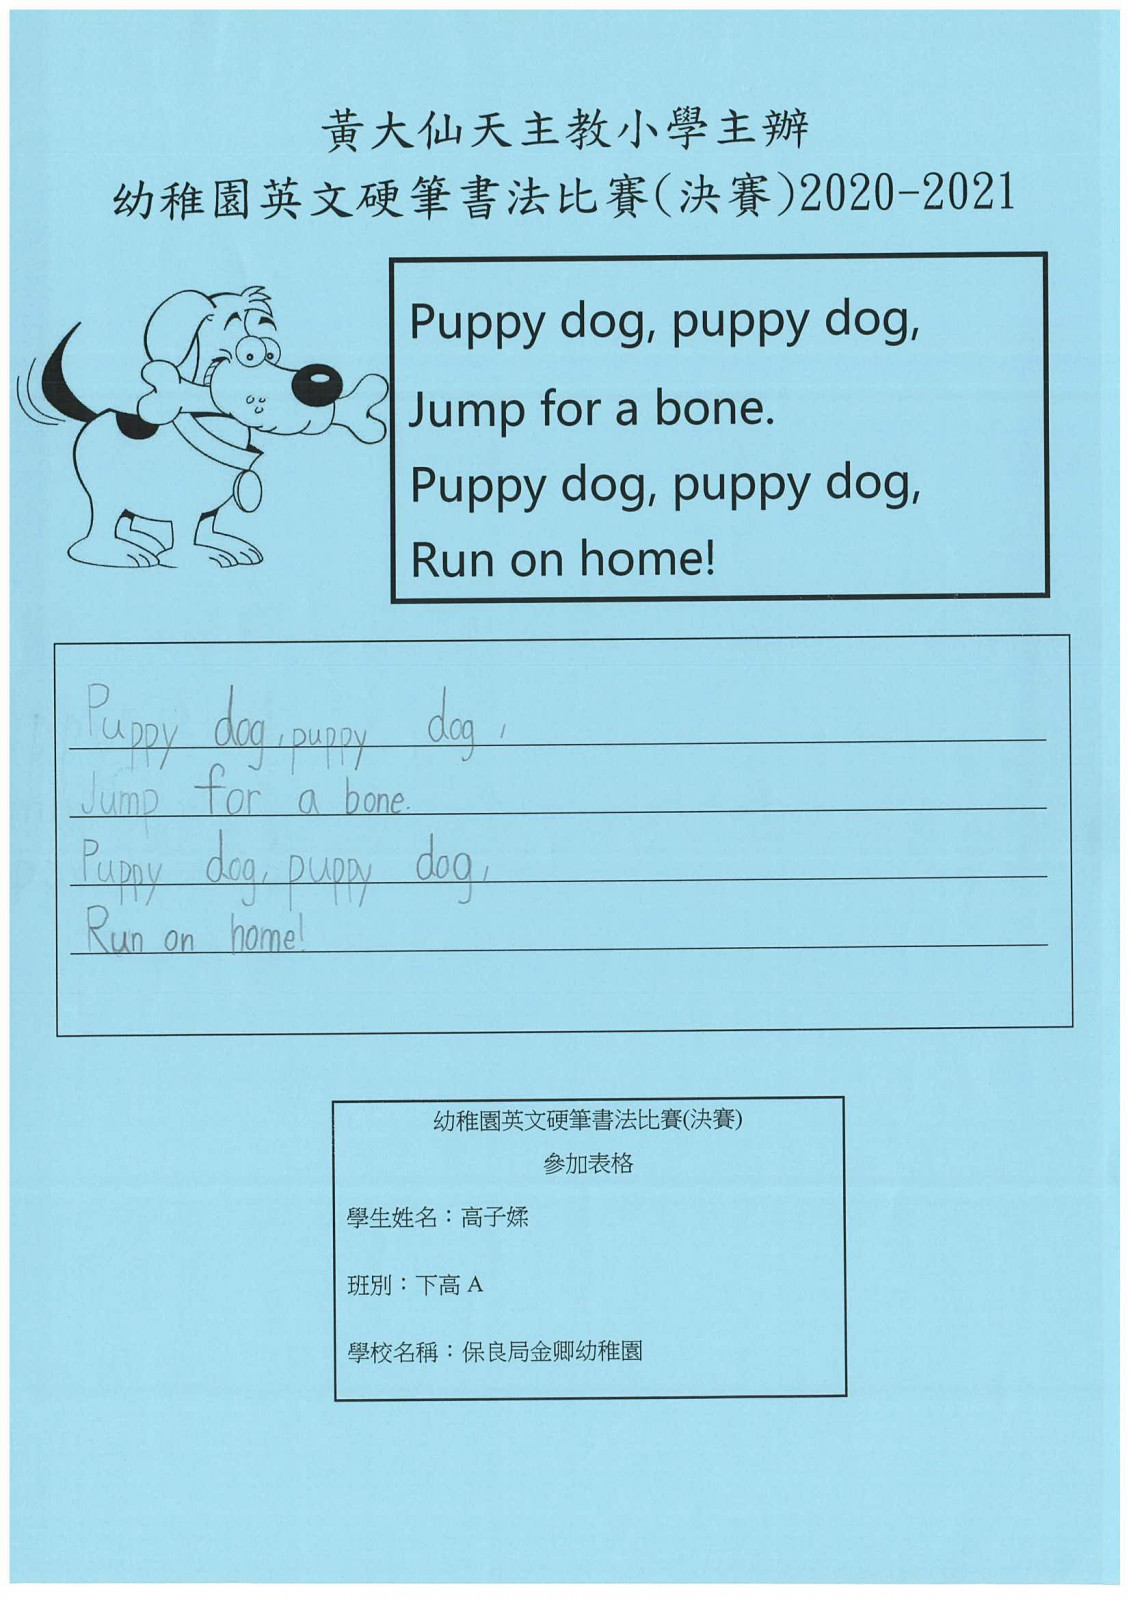 黃大仙天主教小學主辦
幼稚園英文硬筆書法比賽(決賽)2020-2021
Puppy dog, puppy dog,
Jump for a bone.
Puppy dog, puppy dog,
Run on home!
Puppy dog, puppy dog,
Jump for a bone.
Puppy dog, puppy dog,
Run on home!
幼稚園英文硬筆書法比賽(決賽)
參加表格
學生姓名：高子媃
班別：下高 A
學校名稱：保良局金卿幼稚園